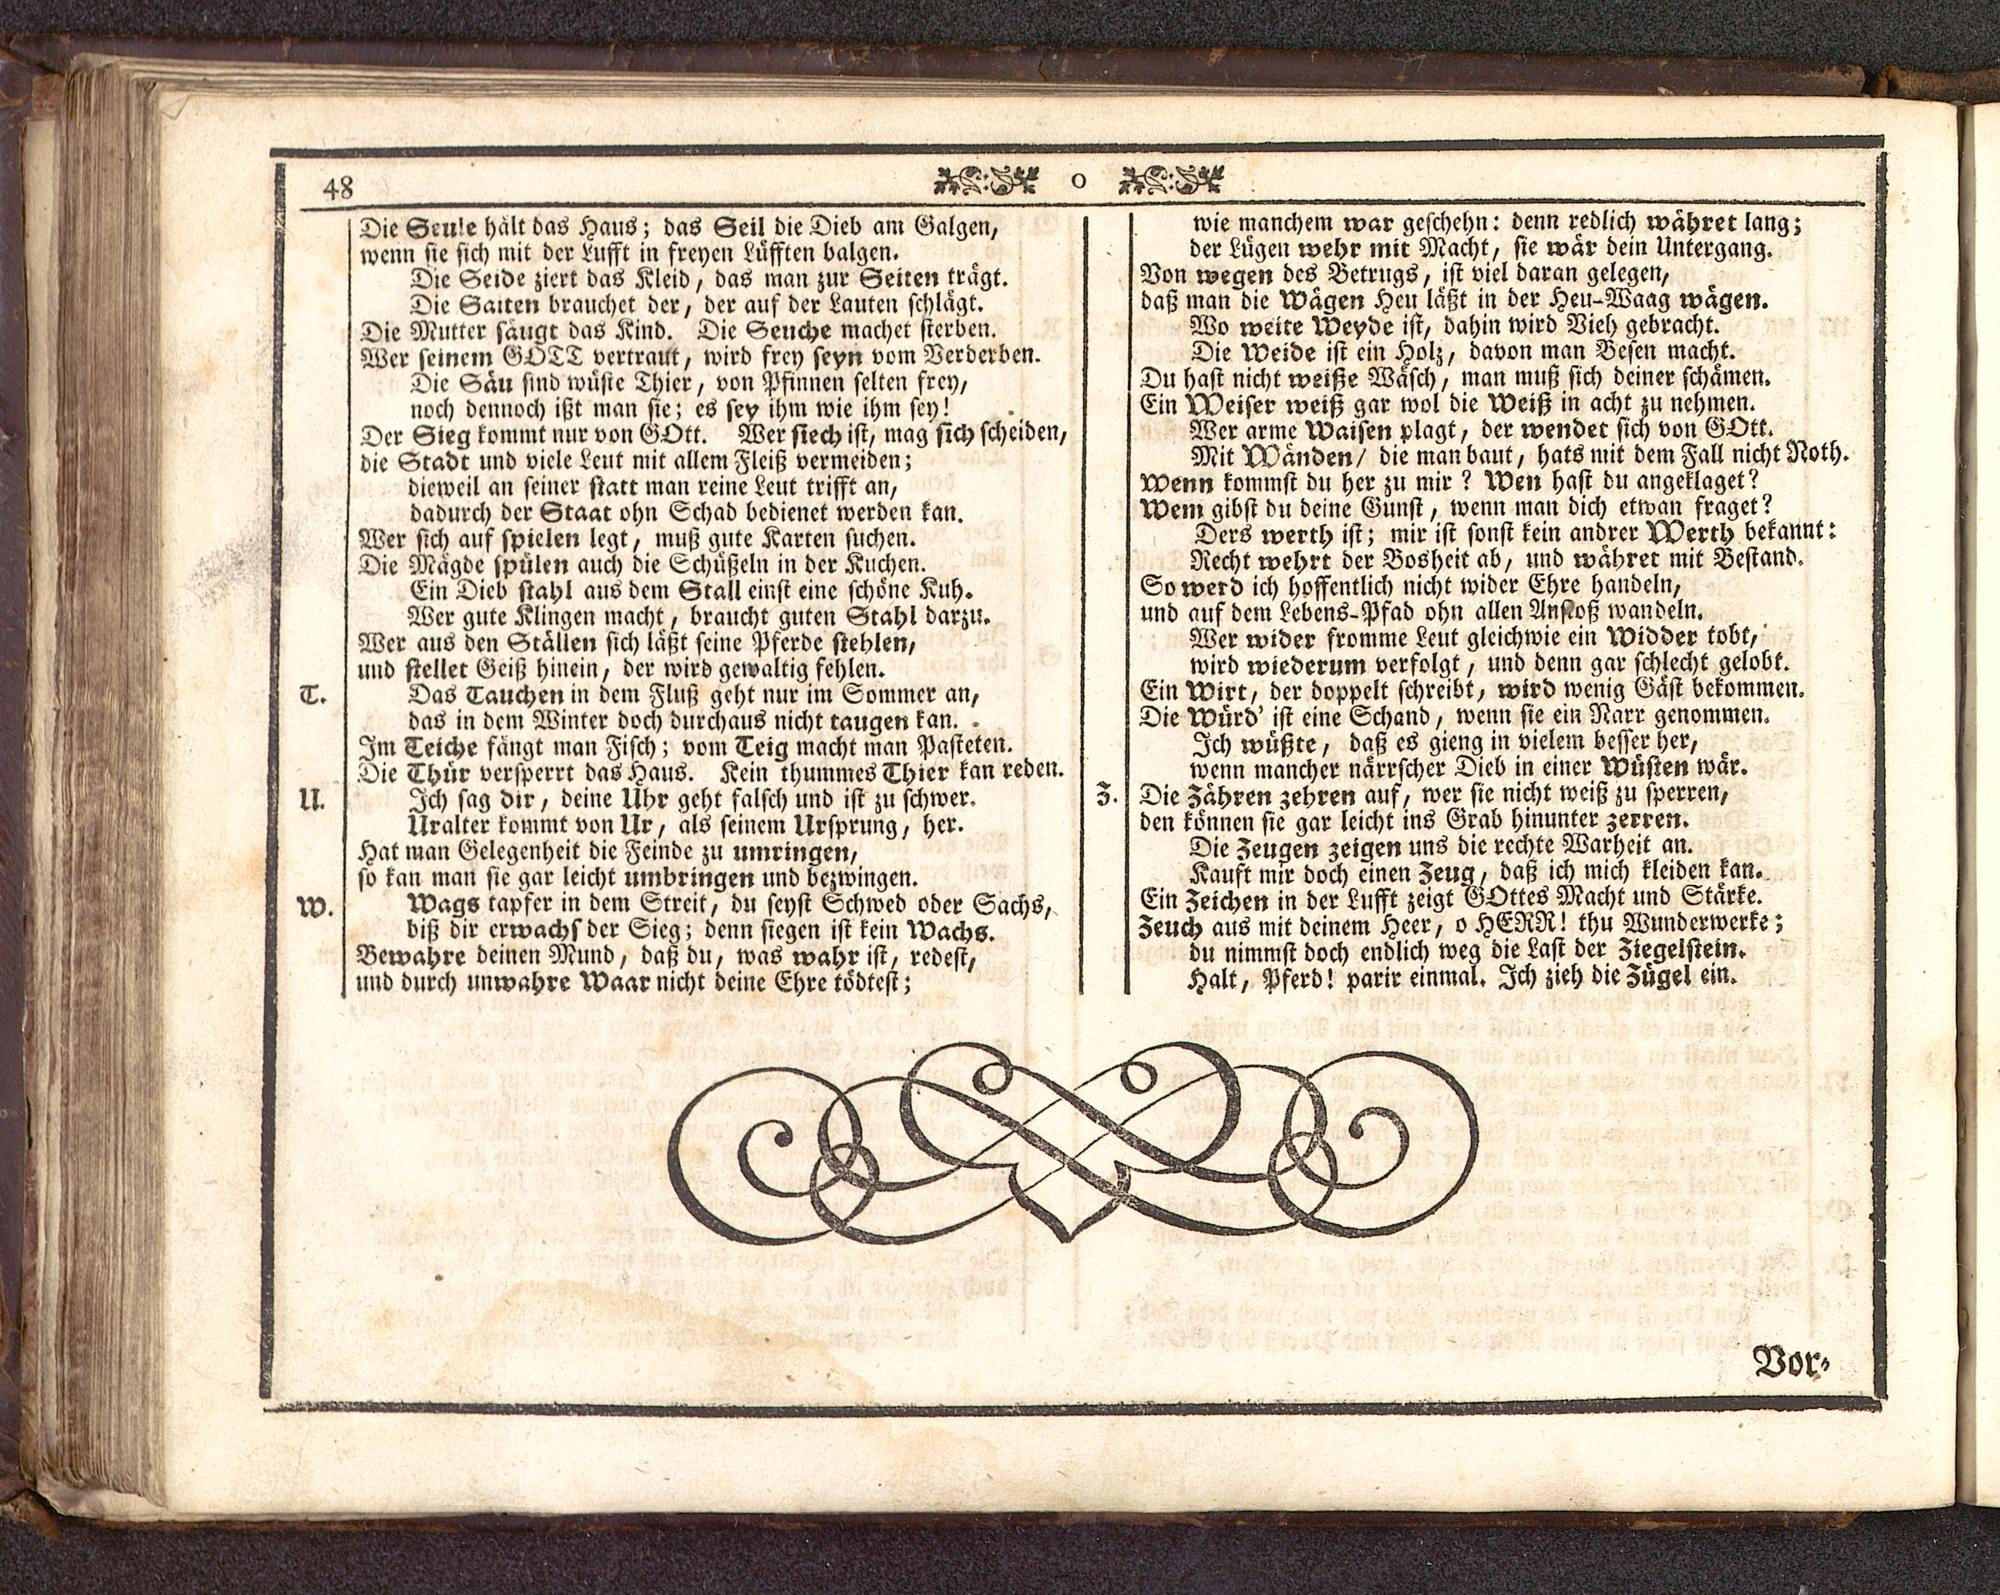 48 o
Die Seule hält das Haus; das Seil die Dieb am Galgen,
wenn sie sich mit der Lufft in freyen Lüfften balgen.
Die Seide ziert das Kleid, das man zur Seiten trägt.
Die Saiten brauchet der, der auf der Lauten schlägt.
Die Mutter säugt das Kind. Die Seuche machet sterben.
Wer seinem GOTT vertraut, wird frey seyn vom Verderben.
Die Säu sind wüste Thier, von Pfinnen selten frey,
noch dennoch ißt man sie; es sey ihm wie ihm sey!
Der Sieg kommt nur von GOtt. Wer siech ist, mag sich scheiden,
die Stadt und viele Leut mit allem Fleiß vermeiden;
dieweil an seiner statt man reine Leut trifft an,
dadurch der Staat ohn Schad bedienet werden kan.
Wer sich auf spielen legt, muß gute Karten suchen.
Die Mägde spülen auch die Schüßeln in der Kuchen.
Ein Dieb stahl aus dem Stall einst eine schöne Kuh.
Wer gute Klingen macht, braucht guten Stahl darzu.
Wer aus den Ställen sich läßt seine Pferde stehlen,
und stellet Geiß hinein, der wird gewaltig fehlen.
T. Das Tauchen in dem Fluß geht nur im Sommer an,
das in dem Winter doch durchaus nicht taugen kan.
Im Teiche fängt man Fisch; vom Teig macht man Pasteten.
Die Thür versperrt das Haus. Kein thummes Thier kan reden.
U. Ich sag dir, deine Uhr geht falsch und ist zu schwer.
Uralter kommt von Ur, als seinem Ursprung, her.
Hat man Gelegenheit die Feinde zu umringen,
so kan man sie gar leicht umbringen und bezwingen.
W. Wags tapfer in dem Streit, du seyst Schwed oder Sachs,
biß dir erwachs der Sieg; denn siegen ist kein Wachs.
Bewahre deinen Mund, daß du, was wahr ist, redest,
und durch unwahre Waar nicht deine Ehre tödtest;
wie manchem war geschehn: denn redlich währet lang;
der Lügen wehr mit Macht, sie wär dein Untergang.
Von wegen des Betrugs, ist viel daran gelegen,
daß man die Wägen Heu läßt in der Heu-Waag wägen.
Wo weite Weyde ist, dahin wird Vieh gebracht.
Die Weide ist ein Holz, davon man Besen macht.
Du hast nicht weiße Wäsch, man muß sich deiner schämen.
Ein Weiser weiß gar wol die Weiß in acht zu nehmen.
Wer arme Waisen plagt, der wendet sich von GOtt.
Mit Wänden/ die man baut, hats mit dem Fall nicht Noth.
Wenn kommst du her zu mir? Wen hast du angeklaget?
Wem gibst du deine Gunst, wenn man dich etwan fraget?
Ders werth ist; mir ist sonst kein andrer Werth bekannt:
Recht wehrt der Bosheit ab, und währet mit Bestand.
So werd ich hoffentlich nicht wider Ehre handeln,
und auf dem Lebens-Pfad ohn allen Anstoß wandeln.
Wer wider fromme Leut gleichwie ein Widder tobt,
wird wiederum verfolgt, und denn gar schlecht gelobt.
Ein Wirt, der doppelt schreibt, wird wenig Gäst bekommen.
Die Würd' ist eine Schand, wenn sie ein Narr genommen.
Ich wüßte, daß es gieng in vielem besser her,
wenn mancher närrscher Dieb in einer Wüsten wär.
Z. Die Zähren zehren auf, wer sie nicht weiß zu sperren,
den können sie gar leicht ins Grab hinunter zerren.
Die Zeugen zeigen uns die rechte Warheit an.
Kauft mir doch einen Zeug, daß ich mich kleiden kan.
Ein Zeichen in der Lufft zeigt GOttes Macht und Stärke.
Zeuch aus mit deinem Heer, o HERR! thu Wunderwerke;
du nimmst doch endlich weg die Last der Ziegelstein.
Halt, Pferd! parir einmal. Ich zieh die Zügel ein.
Vor-